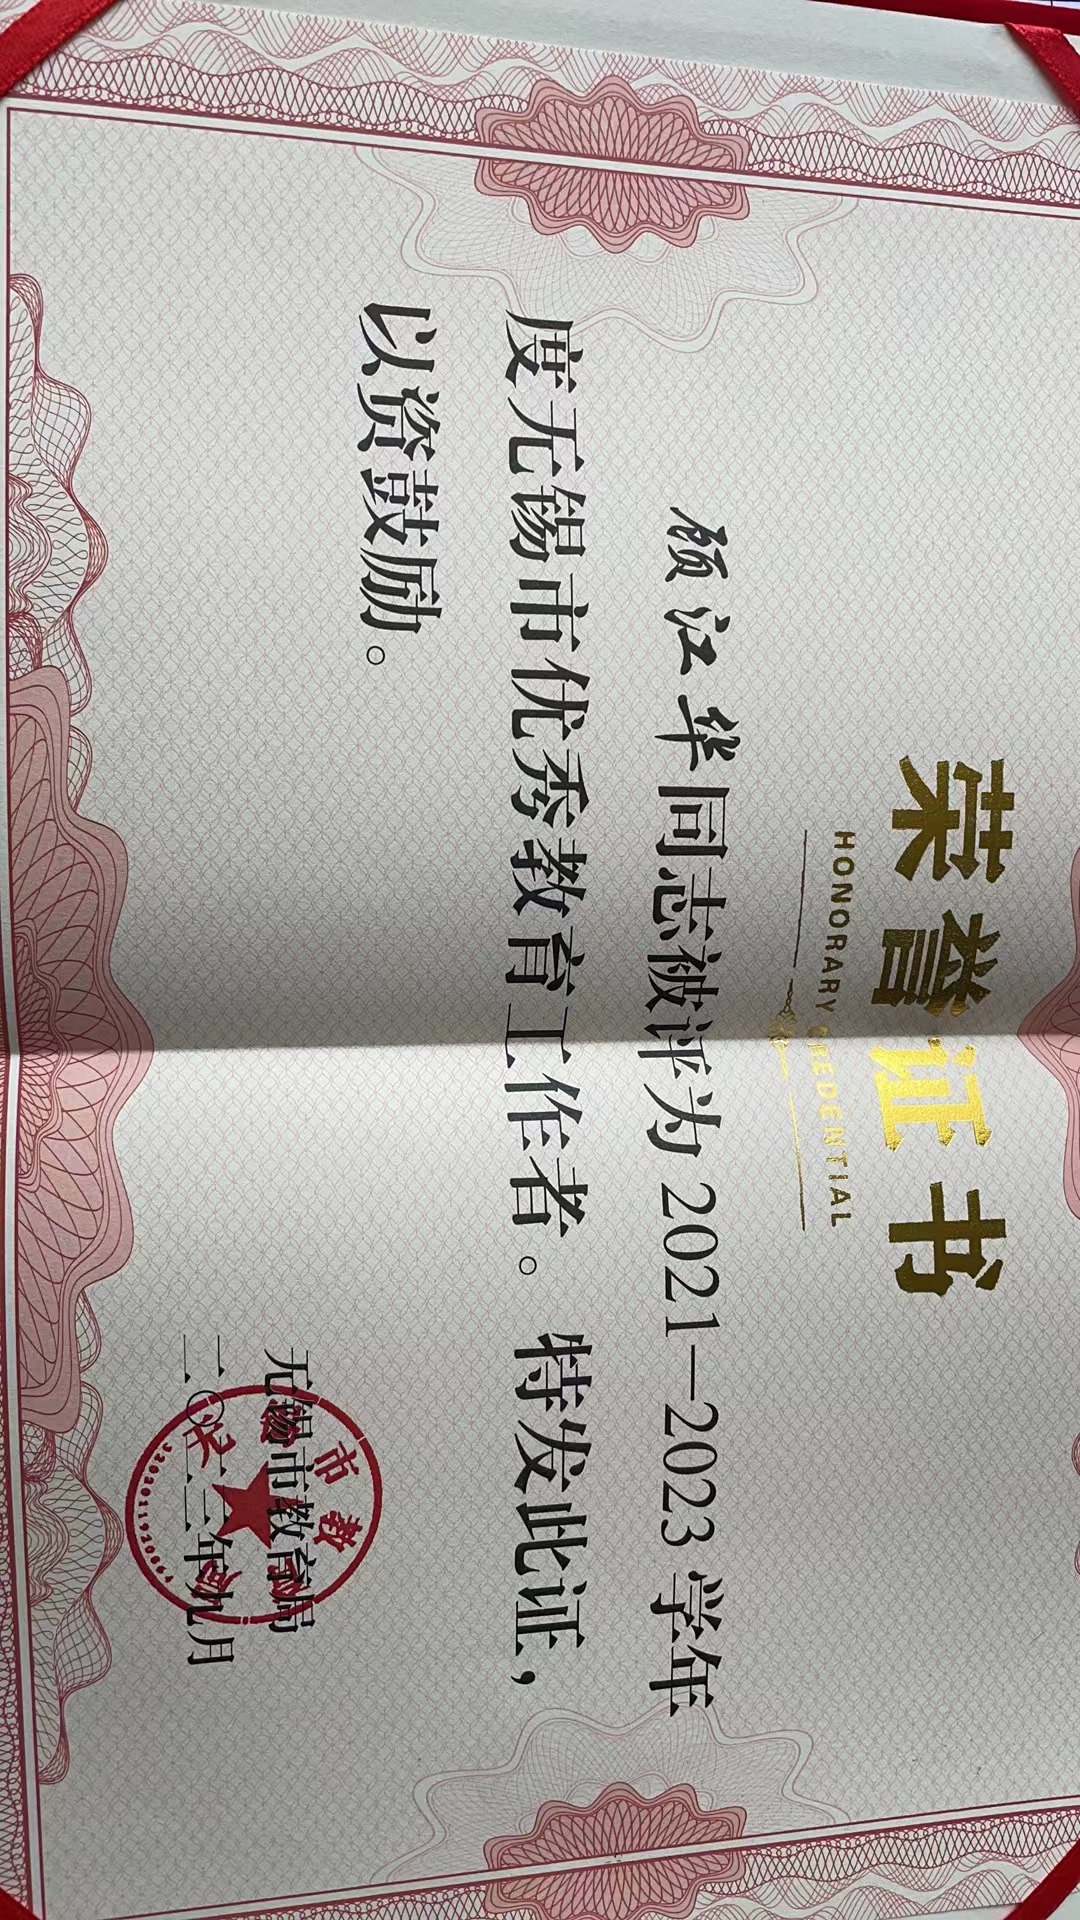 荣誉证书
HONORARY CREDENTIAL
顾江华同志被评为 2021—2023 学年
度无锡市优秀教育工作者。特发此证，
以资鼓励。
无锡市教育局
二〇二三年九月